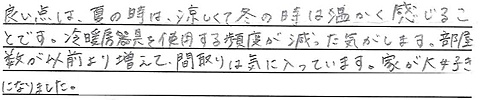 良い点は、夏の時は、涼しくて冬の時は温かく感じるこ
とです。冷暖房器具を使用する頻度が減った気がします。部屋
数が以前より増えて、間取りは気に入っています。家が大好き
になりました。